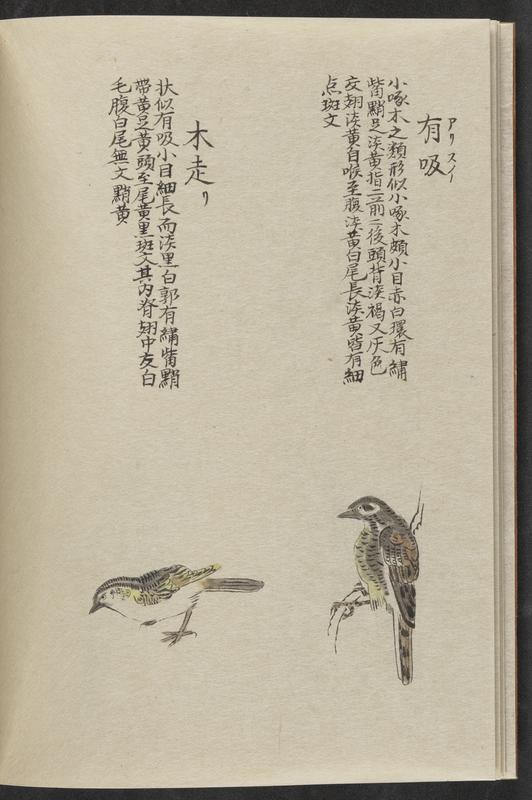 アリスイ
有吸
小啄木之類形似小啄木頗小目赤白環有繡
觜黲足淡黄指二前二後頭背淡褐又灰色
交翅淡黄自喉至腹淡黄白尾長淡黄皆有細
点斑文
木走リ
状似有吸小目細長而淡黒白郭有繡觜黲
帯黄足黄頭至尾黄黒斑文其内脊翅中灰白
毛腹白尾無文黲黄